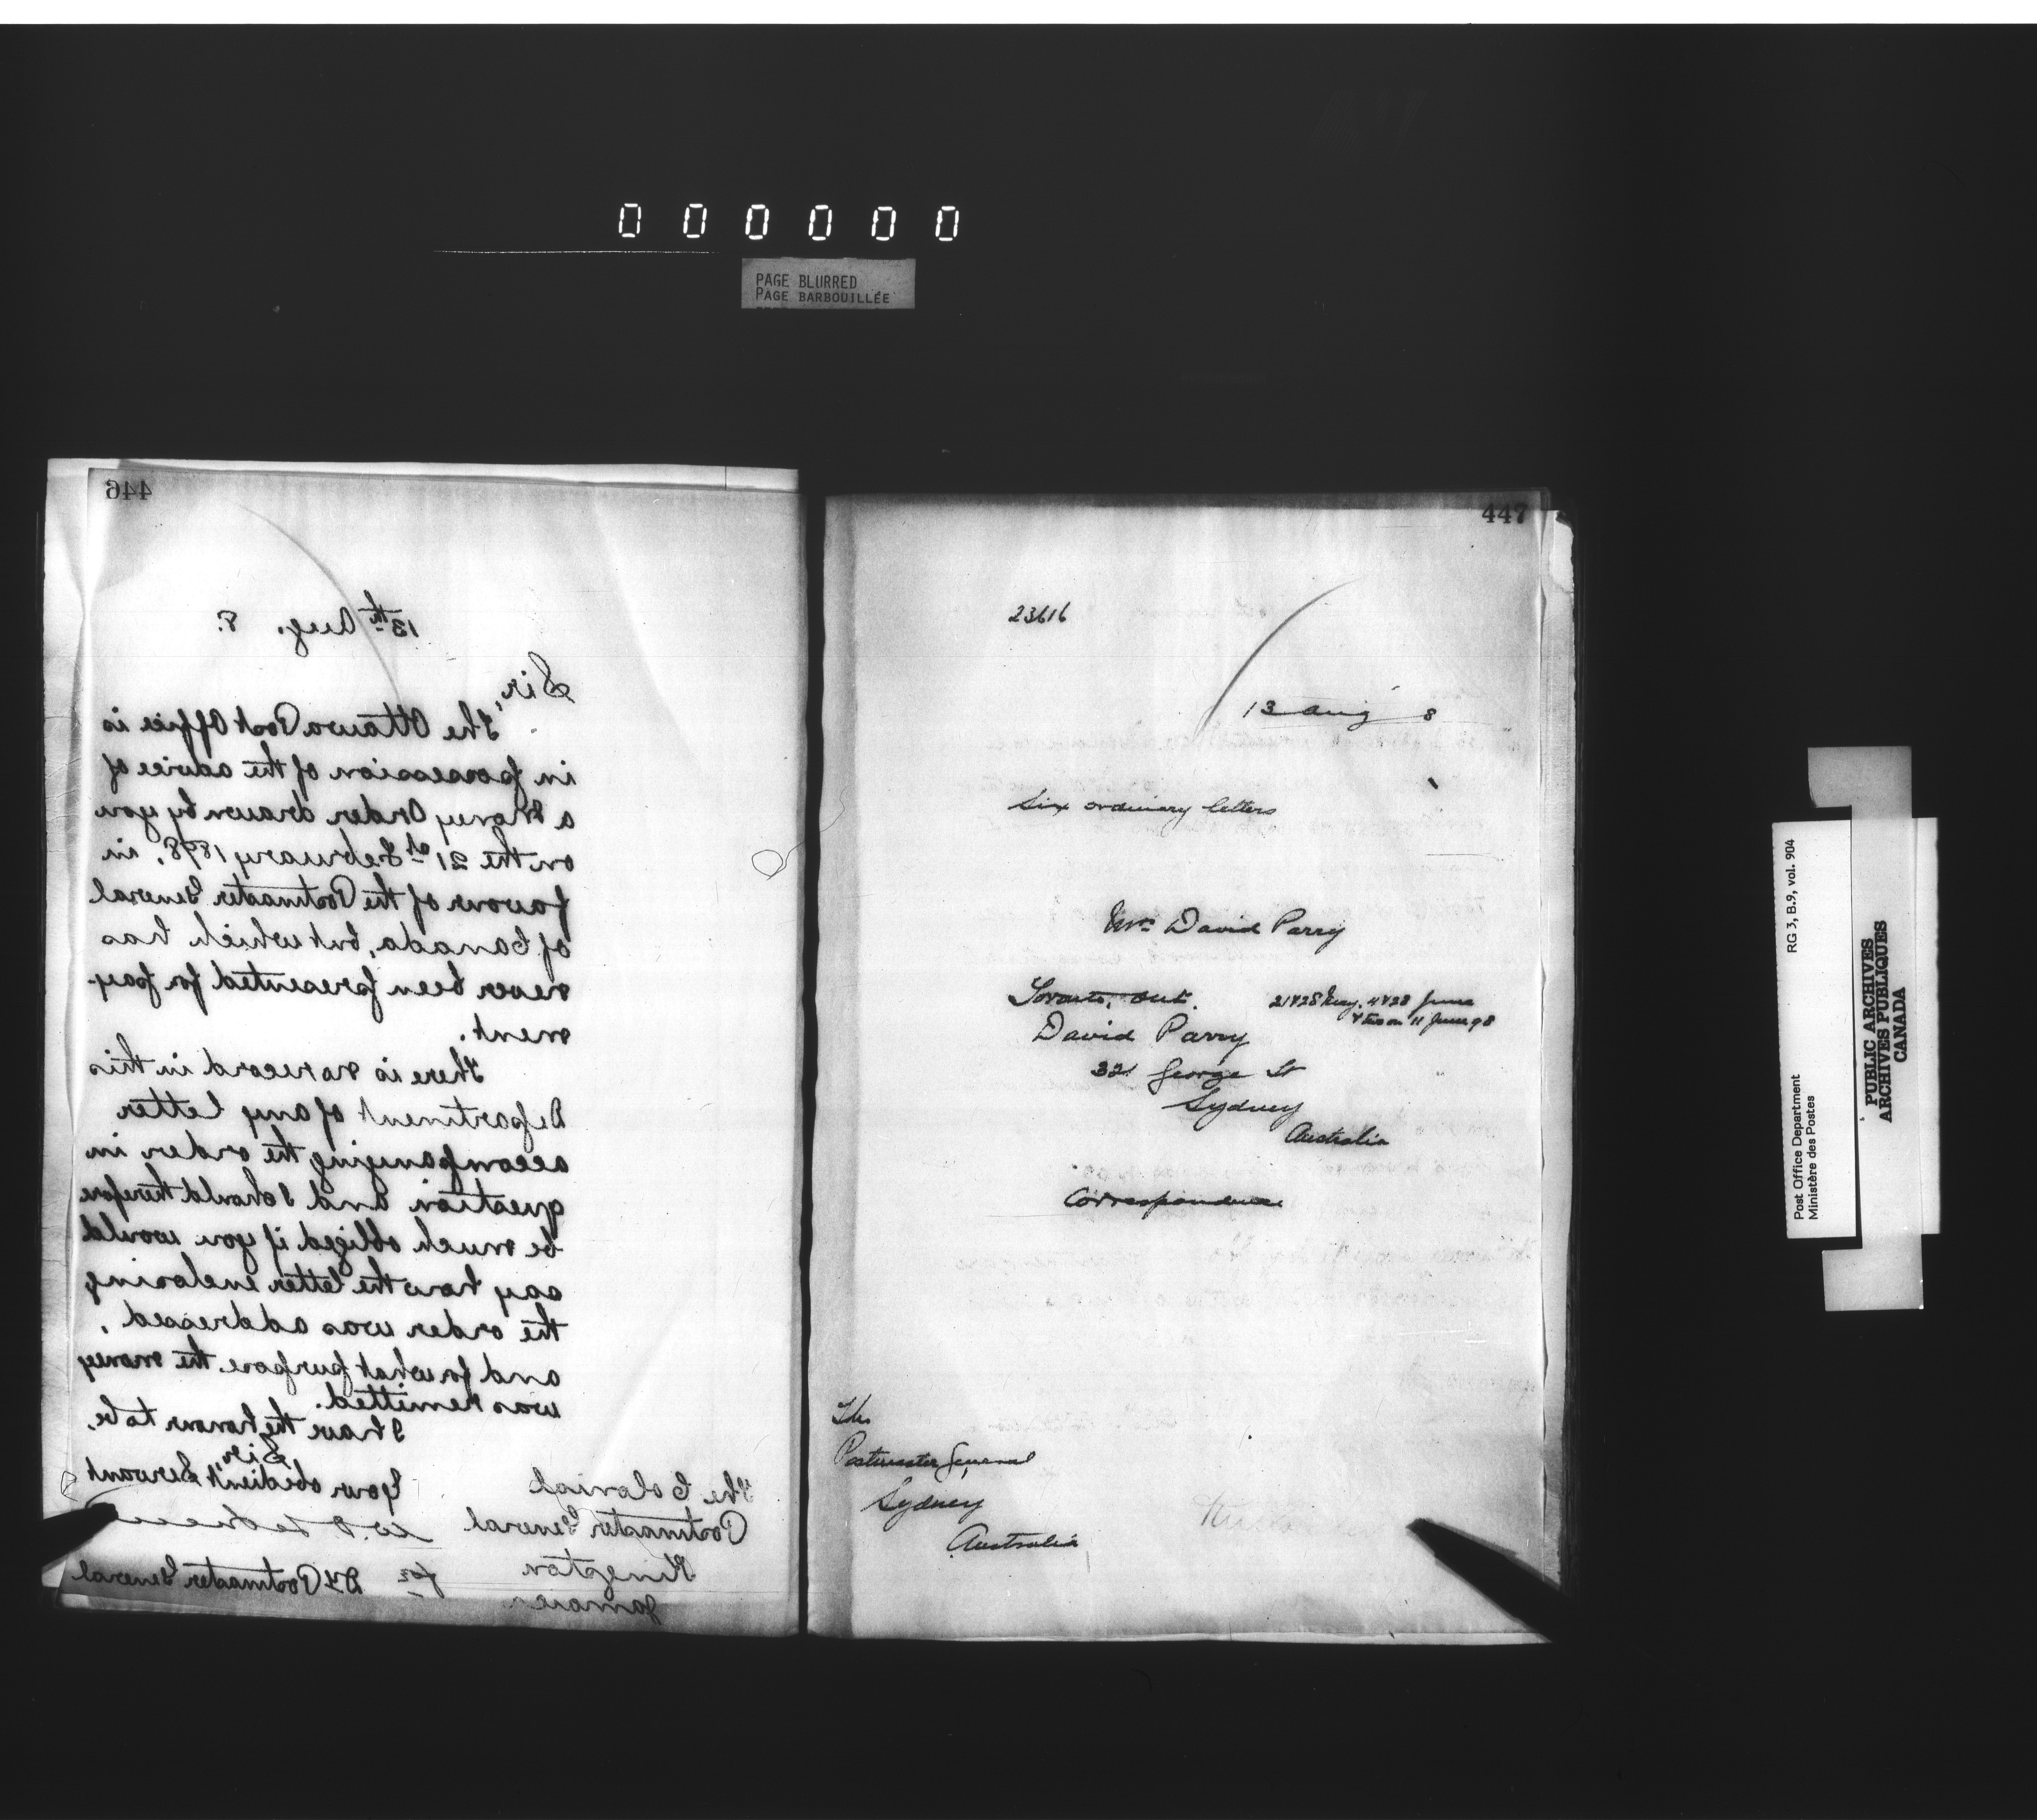 000000
PAGE BLURRED
PAGE BARBOUILLÉE
446
13th Aug. 8.
Sir,
The Ottawa Post Office is
in possession of the advice of
a Money Order drawn by you
on the 21st February 1898, in
favour of the Postmaster General
of Canada, but which has
never been presented for pay-
ment.
There is no record in this
Department of any letter
accompanying the order in
question and I should therefore
be much obliged if you would
say how the letter enclosing
the order was addressed,
and for what purpose the money
was remitted.
I have the honour to be,
Sir,
Your obedient Servant
for Dy Postmaster General
The Colonial
Postmaster General
Kingston
Jamaica
447
23616
13 Aug 8
Six ordinary letters
Mrs David Parry
Toronto, Ont. 21 & 28 May, 4 & 28 June
& two on 11 June 98
David Parry
321 George St
Sydney
Australia
Correspondence
The
Postmaster General
Sydney
Australia
Post Office Department
Ministère des Postes
RG 3, B.9, vol. 904
PUBLIC ARCHIVES
ARCHIVES PUBLIQUES
CANADA